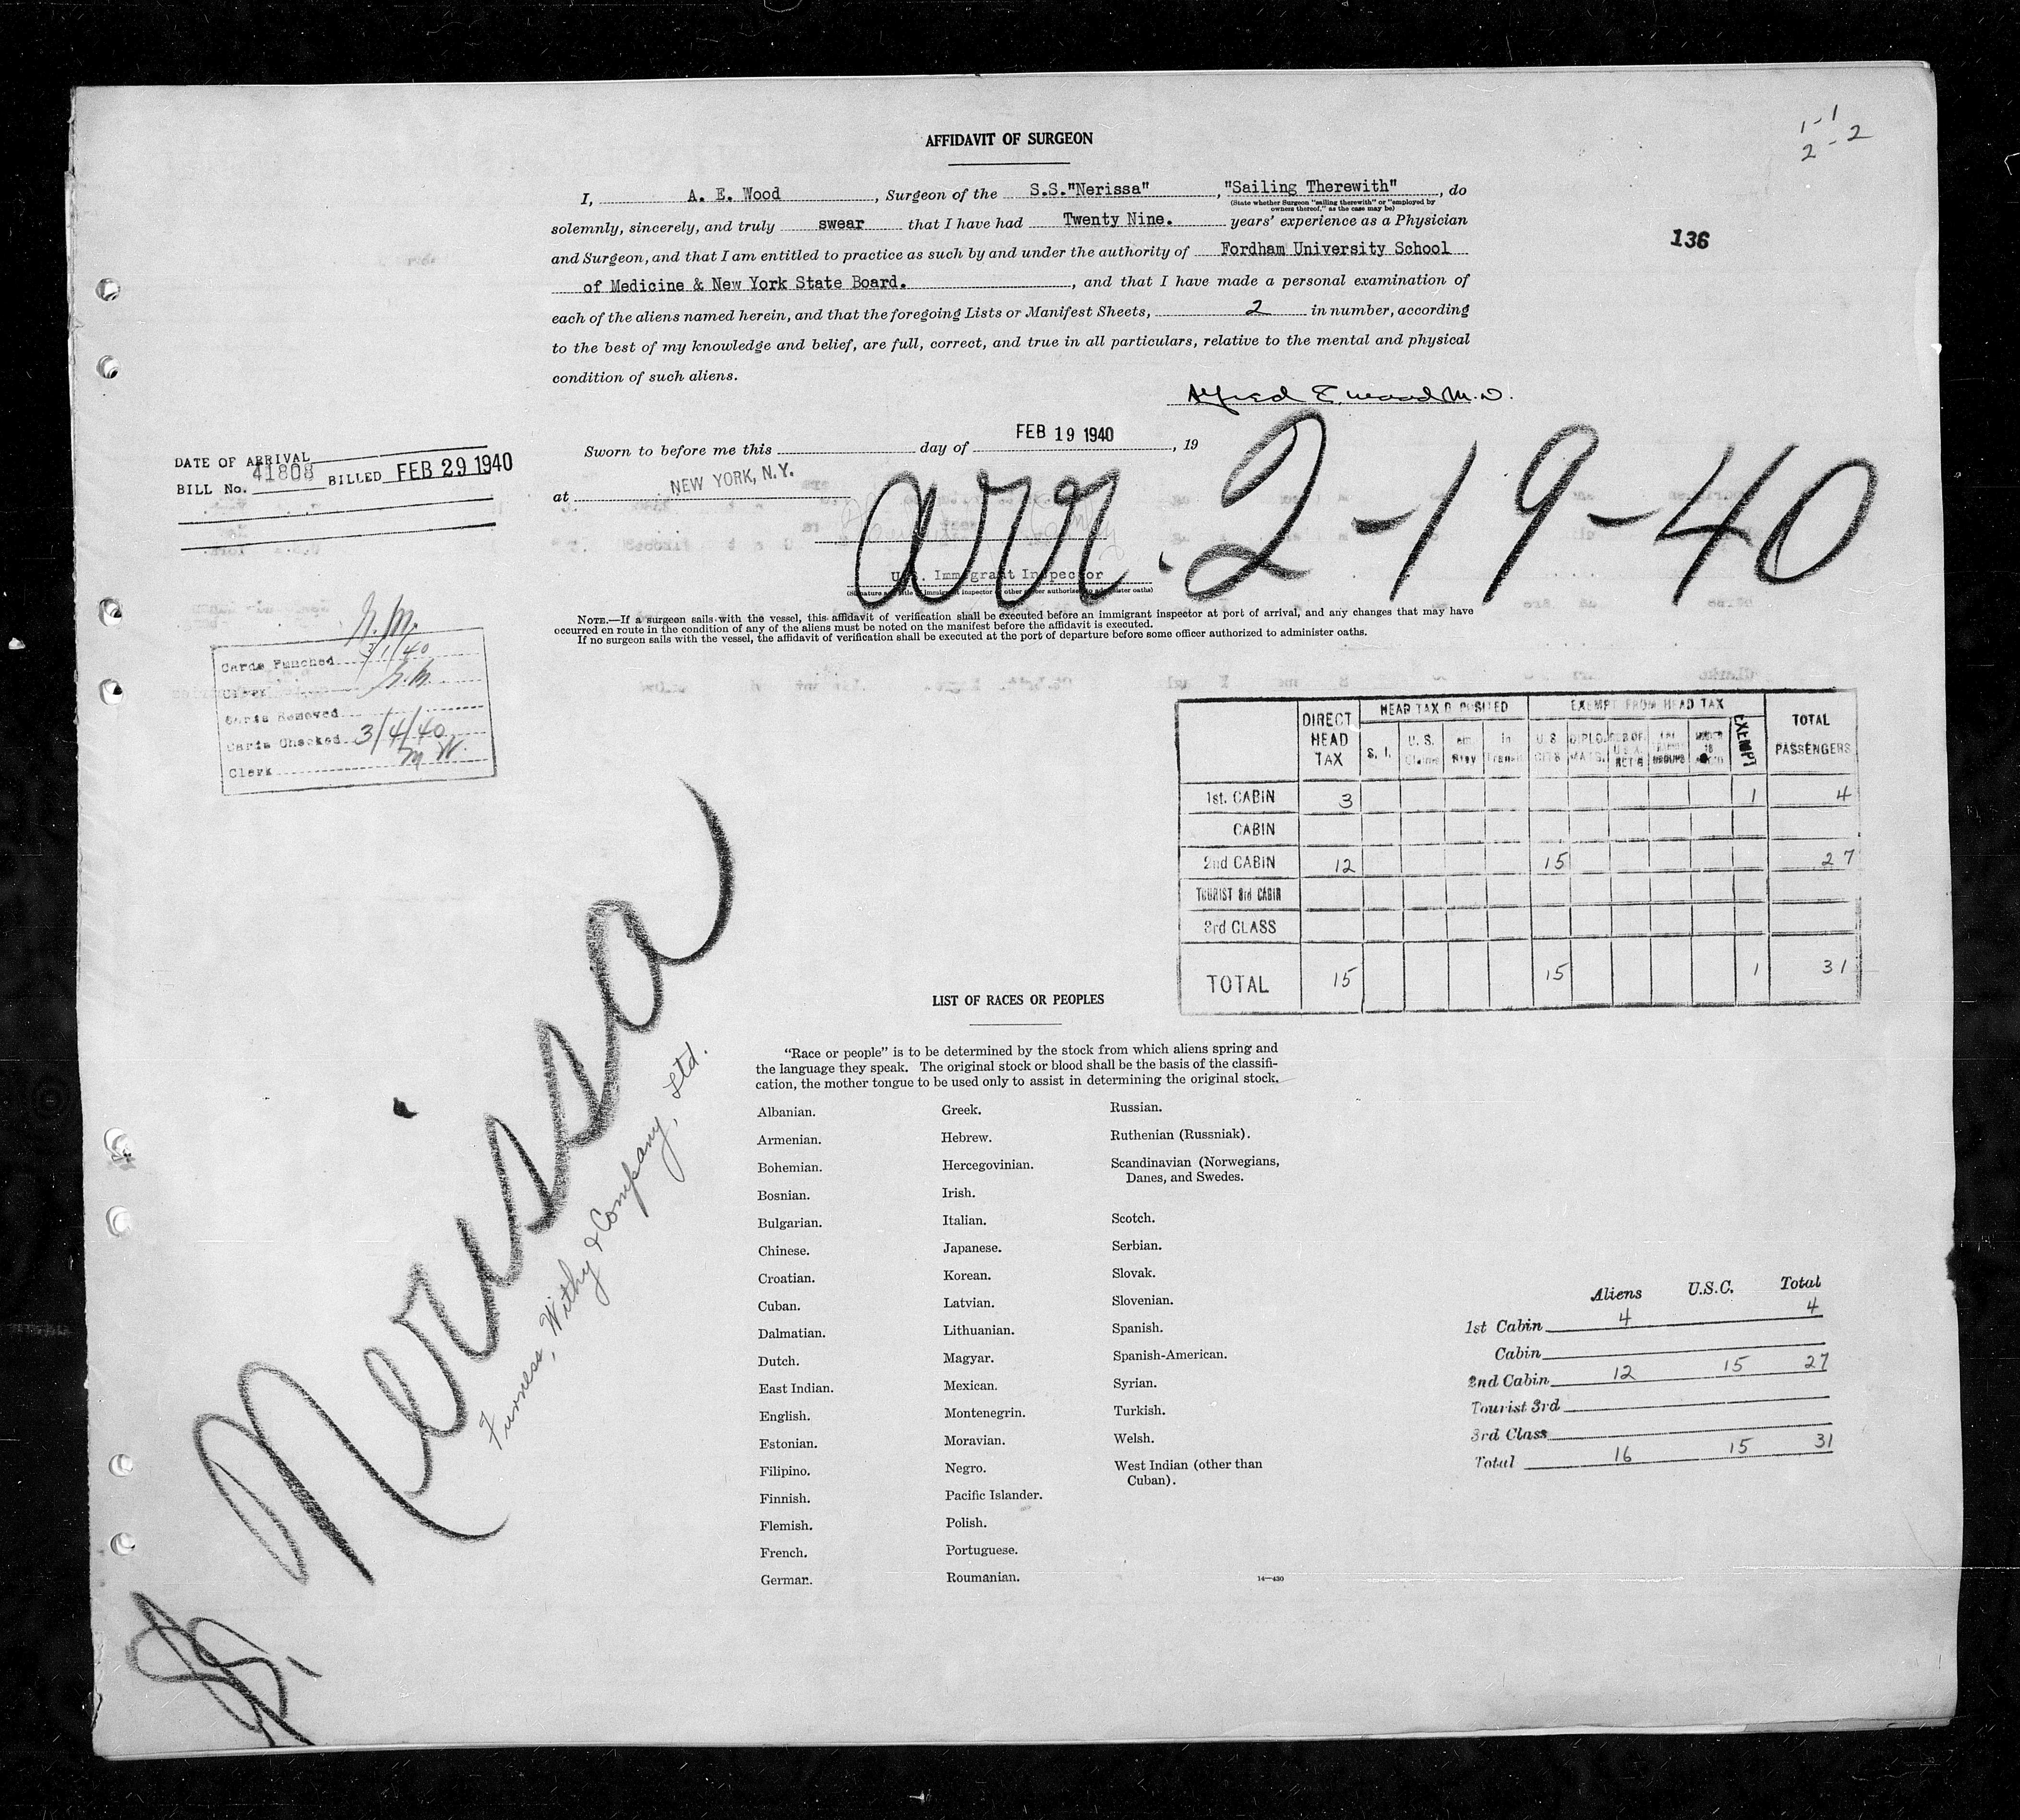 AFFIDAVIT OF SURGEON
1-1
2-2
I, A. E. Wood, Surgeon of the S.S."Nerissa", "Sailing Therewith", do
(State whether Surgeon "sailing therewith" or "employed by
owners thereof," as the case may be)
solemnly, sincerely, and truly swear that I have had Twenty Nine. years' experience as a Physician
136
and Surgeon, and that I am entitled to practice as such by and under the authority of Fordham University School
of Medicine & New York State Board., and that I have made a personal examination of
each of the aliens named herein, and that the foregoing Lists or Manifest Sheets, 2 in number, according
to the best of my knowledge and belief, are full, correct, and true in all particulars, relative to the mental and physical
condition of such aliens.
Alfred E. Wood M.D.
Sworn to before me this day of FEB 19 1940, 19
at NEW YORK, N.Y.
arr. 2-19-40
DATE OF ARRIVAL
BILL No. 41808 BILLED FEB 29 1940
U.S. Immigrant Inspector
(Signature and title of immigrant inspector or other officer authorized to administer oaths)
NOTE.—If a surgeon sails with the vessel, this affidavit of verification shall be executed before an immigrant inspector at port of arrival, and any changes that may have
occurred en route in the condition of any of the aliens must be noted on the manifest before the affidavit is executed.
If no surgeon sails with the vessel, the affidavit of verification shall be executed at the port of departure before some officer authorized to administer oaths.
Cards Punched 3/1/40
Clerk
Cards Removed
Cards Checked 3/4/40
Clerk M W.
DIRECT HEAD TAX
HEAD TAX DEPOSITED
EXEMPT FROM HEAD TAX
TOTAL PASSENGERS
S. I. U. S. Claims In Transit U S CITS DIPLOMATS. EXEMPT
1st. CABIN 3 1 4
CABIN
2nd CABIN 12 15 27
TOURIST 3rd CABIN
3rd CLASS
TOTAL 15 15 1 31
SS. Nerissa
Furness, Withy & Company, Ltd.
LIST OF RACES OR PEOPLES
"Race or people" is to be determined by the stock from which aliens spring and
the language they speak. The original stock or blood shall be the basis of the classifi-
cation, the mother tongue to be used only to assist in determining the original stock.
Albanian.
Armenian.
Bohemian.
Bosnian.
Bulgarian.
Chinese.
Croatian.
Cuban.
Dalmatian.
Dutch.
East Indian.
English.
Estonian.
Filipino.
Finnish.
Flemish.
French.
German.
Greek.
Hebrew.
Hercegovinian.
Irish.
Italian.
Japanese.
Korean.
Latvian.
Lithuanian.
Magyar.
Mexican.
Montenegrin.
Moravian.
Negro.
Pacific Islander.
Polish.
Portuguese.
Roumanian.
Russian.
Ruthenian (Russniak).
Scandinavian (Norwegians,
Danes, and Swedes.
Scotch.
Serbian.
Slovak.
Slovenian.
Spanish.
Spanish-American.
Syrian.
Turkish.
Welsh.
West Indian (other than
Cuban).
14—430
Aliens U.S.C. Total
1st Cabin 4 4
Cabin
2nd Cabin 12 15 27
Tourist 3rd
3rd Class
Total 16 15 31